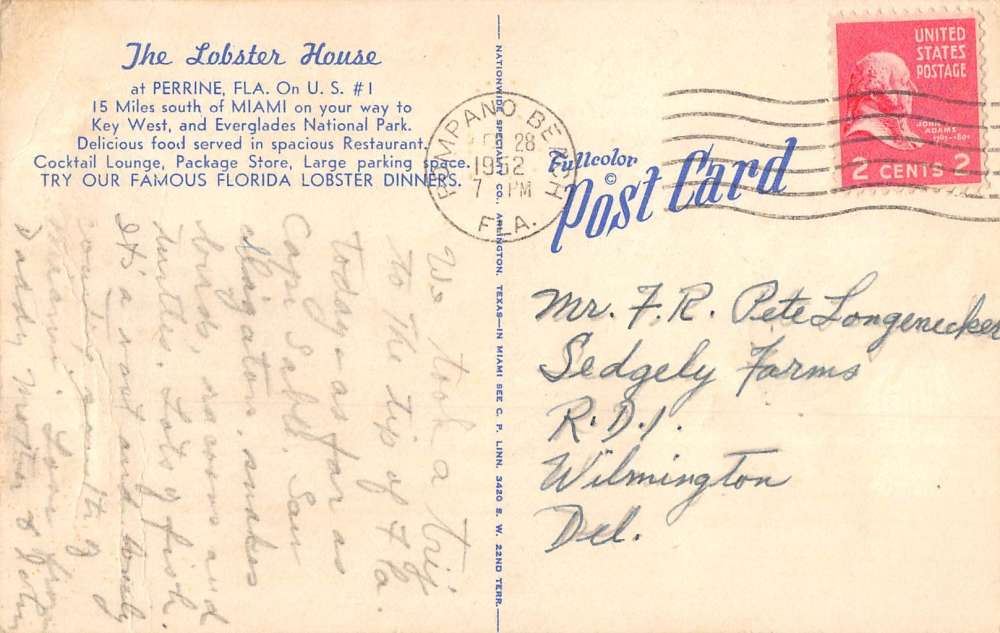 The Lobster House
at PERRINE, FLA. On U. S. #1
15 Miles south of MIAMI on your way to
Key West, and Everglades National Park.
Delicious food served in spacious Restaurant.
Cocktail Lounge, Package Store, Large parking space.
TRY OUR FAMOUS FLORIDA LOBSTER DINNERS.
We took a trip
to the tip of Fla.
today - as far as
Cape Sable. Saw
aligators, snakes
birds, racoons and
turtles. Lots of fish.
It's a vast and lonely
country south of
Miami. Love from
Daddy, Mother &
NATIONWIDE SPECIALTY CO., ARLINGTON, TEXAS—IN MIAMI SEE C. P. LINN, 3420 S. W. 22ND TERR.
POMPANO BEACH
28
1952
7 PM
FLA.
Fullcolor
©
Post Card
UNITED
STATES
POSTAGE
JOHN
ADAMS
1797-1801
2 CENTS 2
Mr. F. R. Pete Longenecker
Sedgely Farms
R.D.1.
Wilmington
Del.